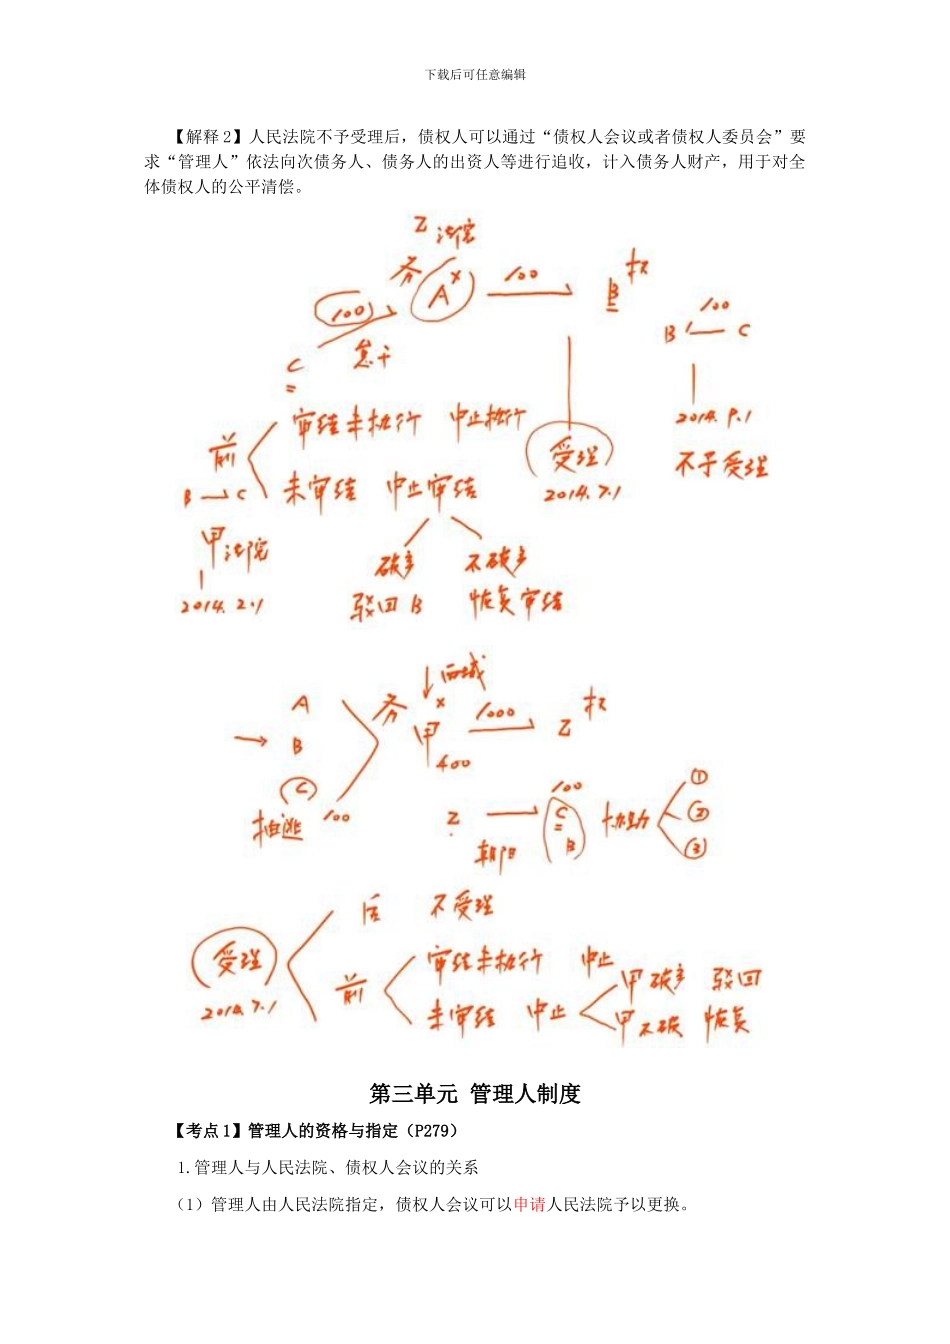 下载后可任意编辑
【解释 2】人民法院不予受理后，债权人可以通过“债权人会议或者债权人委员会”要
求“管理人”依法向次债务人、债务人的出资人等进行追收，计入债务人财产，用于对全
体债权人的公平清偿。
乙 法院
务 A × 100 B 权
100
怠于
C
100
B — C
2014.9.1
不予受理
受理
2014.7.1
前
审结未执行 中止执行
未审结 中止审结
B → C
甲法院
2014.2.1
破产
驳回 B
不破产
恢复审结
西城
A
B
C
抽逃 100
务 甲 × 1000 乙 权
400
乙 100 C
B
朝阳
协助 ① ② ③
受理
2014.7.1
后 不受理
前
审结未执行 中止
未审结 中止
甲破产 驳回
甲不破 恢复
第三单元 管理人制度
【考点 1】管理人的资格与指定（P279）
1.管理人与人民法院、债权人会议的关系
（1）管理人由人民法院指定，债权人会议可以申请人民法院予以更换。